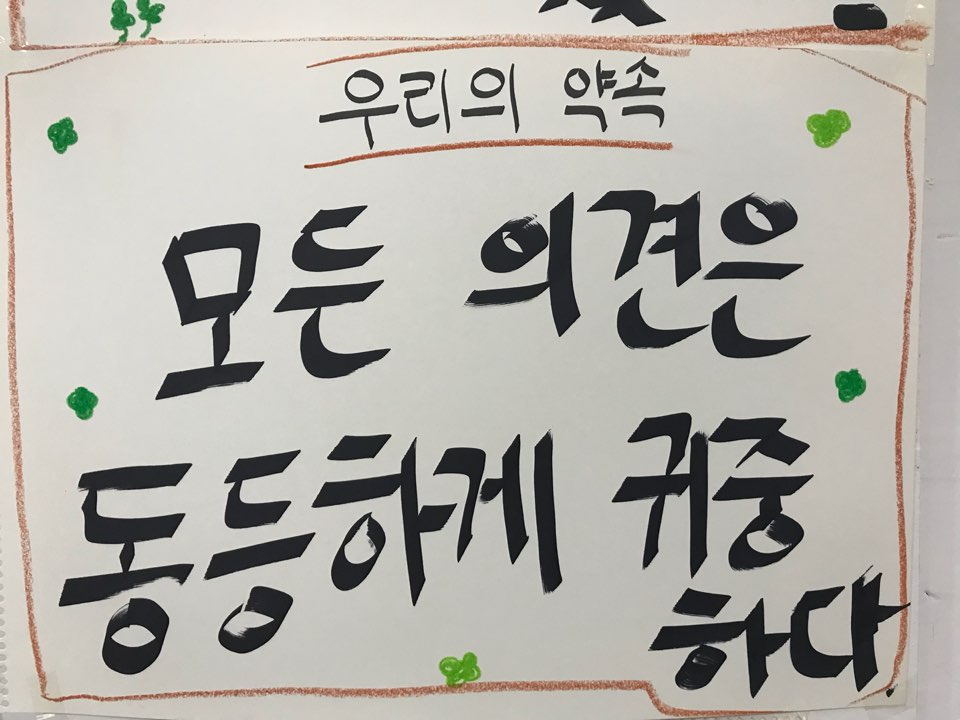 우리의 약속
모든 의견은
동등하게 귀중
하다.